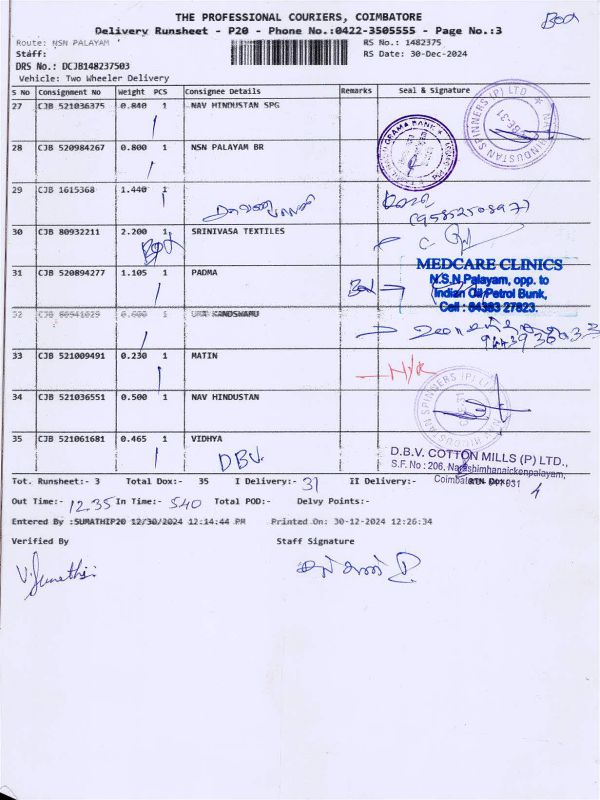 THE PROFESSIONAL COURIERS, COIMBATORE
Delivery Runsheet - P20 - Phone No.:0422-3505555 - Page No.:3
Route: NSN PALAYAM
RS No.: 1482375
Staff:
RS Date: 30-Dec-2024
DRS No.: DCJB148237503
Vehicle: Two Wheeler Delivery
S No Consignment No Weight PCS Consignee Details Remarks Seal & Signature
27 CJB 521036375 0.840 1 NAV HINDUSTAN SPG
28 CJB 520984267 0.800 1 NSN PALAYAM BR
29 CJB 1615368 1.440 1
30 CJB 80932211 2.200 1 SRINIVASA TEXTILES
31 CJB 520894277 1.105 1 PADMA
MEDCARE CLINICS
N.S.N.Palayam, opp. to
Indian Oil Petrol Bunk,
Cell : 84383 27823.
32 CJB 80941029 0.600 1 KANDSWAMU
33 CJB 521009491 0.230 1 MATIN
34 CJB 521036551 0.500 1 NAV HINDUSTAN
35 CJB 521061681 0.465 1 VIDHYA
DBV.
D.B.V. COTTON MILLS (P) LTD.,
S.F. No : 206, Narashimhanaickenpalayam,
Tot. Runsheet:- 3 Total Dox:- 35 I Delivery:- 31 II Delivery:- RTN Dox:- 4
Out Time:- 12.35 In Time:- 5.40 Total POD:- Delvy Points:-
Entered By :SUMATHIP20 12/30/2024 12:14:44 PM Printed On: 30-12-2024 12:26:34
Verified By Staff Signature